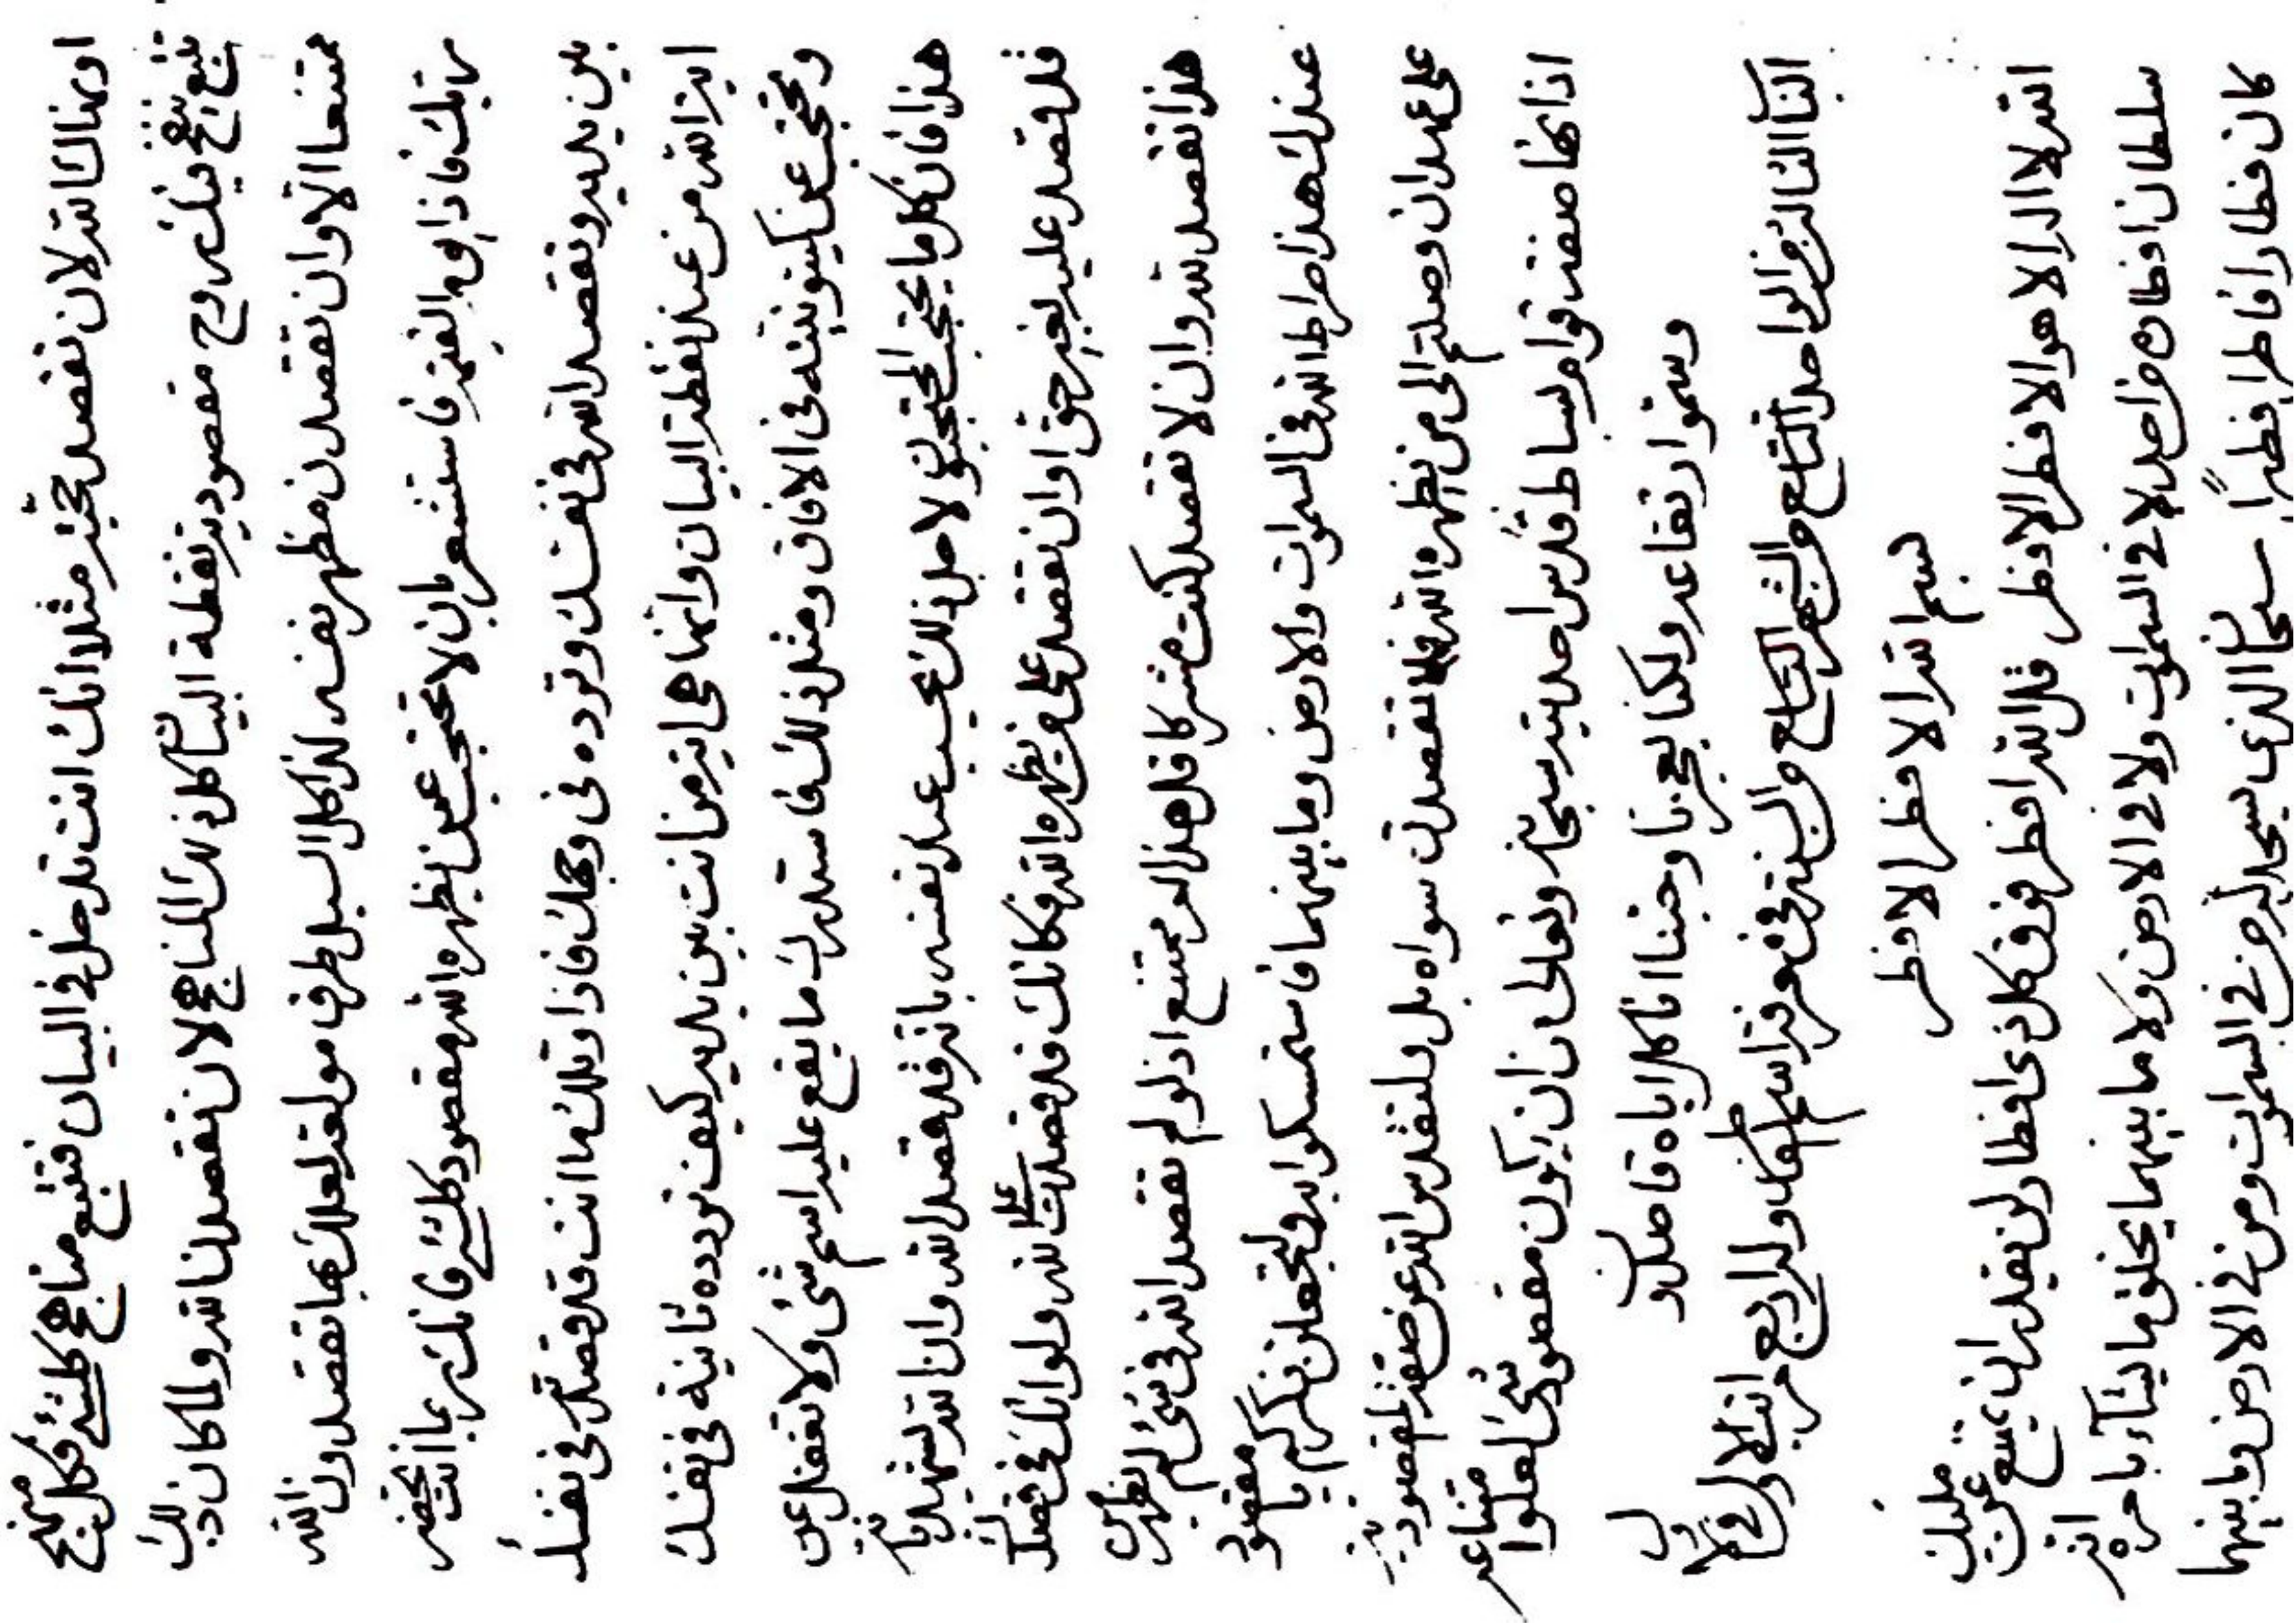 اوهنالك الله لان تقصد مثلا انك انت تدخل فى البيان فتتبع مناهج كلشئ فكل منهج
تتبع ينفخ فيك روح مقصودية نقطة البيان كل ذلك المناهج لان تقصدن الله ولما كان ذلك
ممتنعا الا وان تقصدن مظهر نفسه لذا كل السبل طرق لعلك بها تقصدون الله
ربك فاذا يوم القيمة فاستشعر بان لا تحتجب عمن يظهره الله مقصود كلشئ فانك بما انت تحضر
بين يديه وتقصد الله فى نفسك وترده فى وجهك فاذا انت قد قصدته فى نفسك
اية الله من عند نقطة البيان وانها هى اية من انت بين يديه كيف تردده ثانية فى نفسك
وتحتجب عن كينونيته فى الافاق ومثل ذلك فاستدرك ما يقع عليه اسم شئ ولا تغفل عن
هذا فان كل ما يحتجب المحتجبون لاجل ذلك يحسب عند نفسه بانه قد قصد الله وان الله يشهد بانه
قد قصد عليه بغير حق اوان تقصد على من يظهره الله فكانك قد قصدت على الله ولو انك فى قصدك
هذا تقصد لله وان لا تقصد كنت مشركا قل هذا لو يمتنع اذ لو لم تقصد الله فى شئ لم يظهر
عندك هذا صراط الله فى السموات والارض وما بينهما فاستمسكوا به ولتجعلن ذكركم يا مقصود
على عهد ان وصلتم الى من يظهره الله فلا تقصدن سواه بل ولتقدس الله عن صفة المقصودية
اذ انها صفة بساط قدس احديته سبحانه وتعالى ان يكون مقصود شئ لعلوا متناعه
وسموا ارتفاعه ولكنا بعجزنا وحبنا انا كل اياه قاصدون
الباب الثالث من الواحد التاسع والعشر التاسع والسنة فى معرفة اسم الفطار وله اربع مراتب الاول فى الاول
بسم الله الافطر الافطر
الله لا اله الا هو الافطر الافطر قل الله افطر فوق كل ذى افطار لن يقدر ان يمتنع عن مليك
سلطان افطاره من احد لا فى السموات ولا فى الارض ولا ما بينهما يخلق ما يشاء بامره انه
كان فطارا فاطرا فطيرا سبحان الذى يسجد له من فى السموات ومن فى الارض وما بينهما